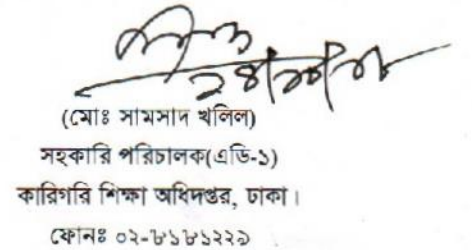 (মোঃ সামসাদ খলিল)
সহকারি পরিচালক(এডি-১)
কারিগরি শিক্ষা অধিদপ্তর, ঢাকা।
ফোনঃ ০২-৮১৮১২২৯